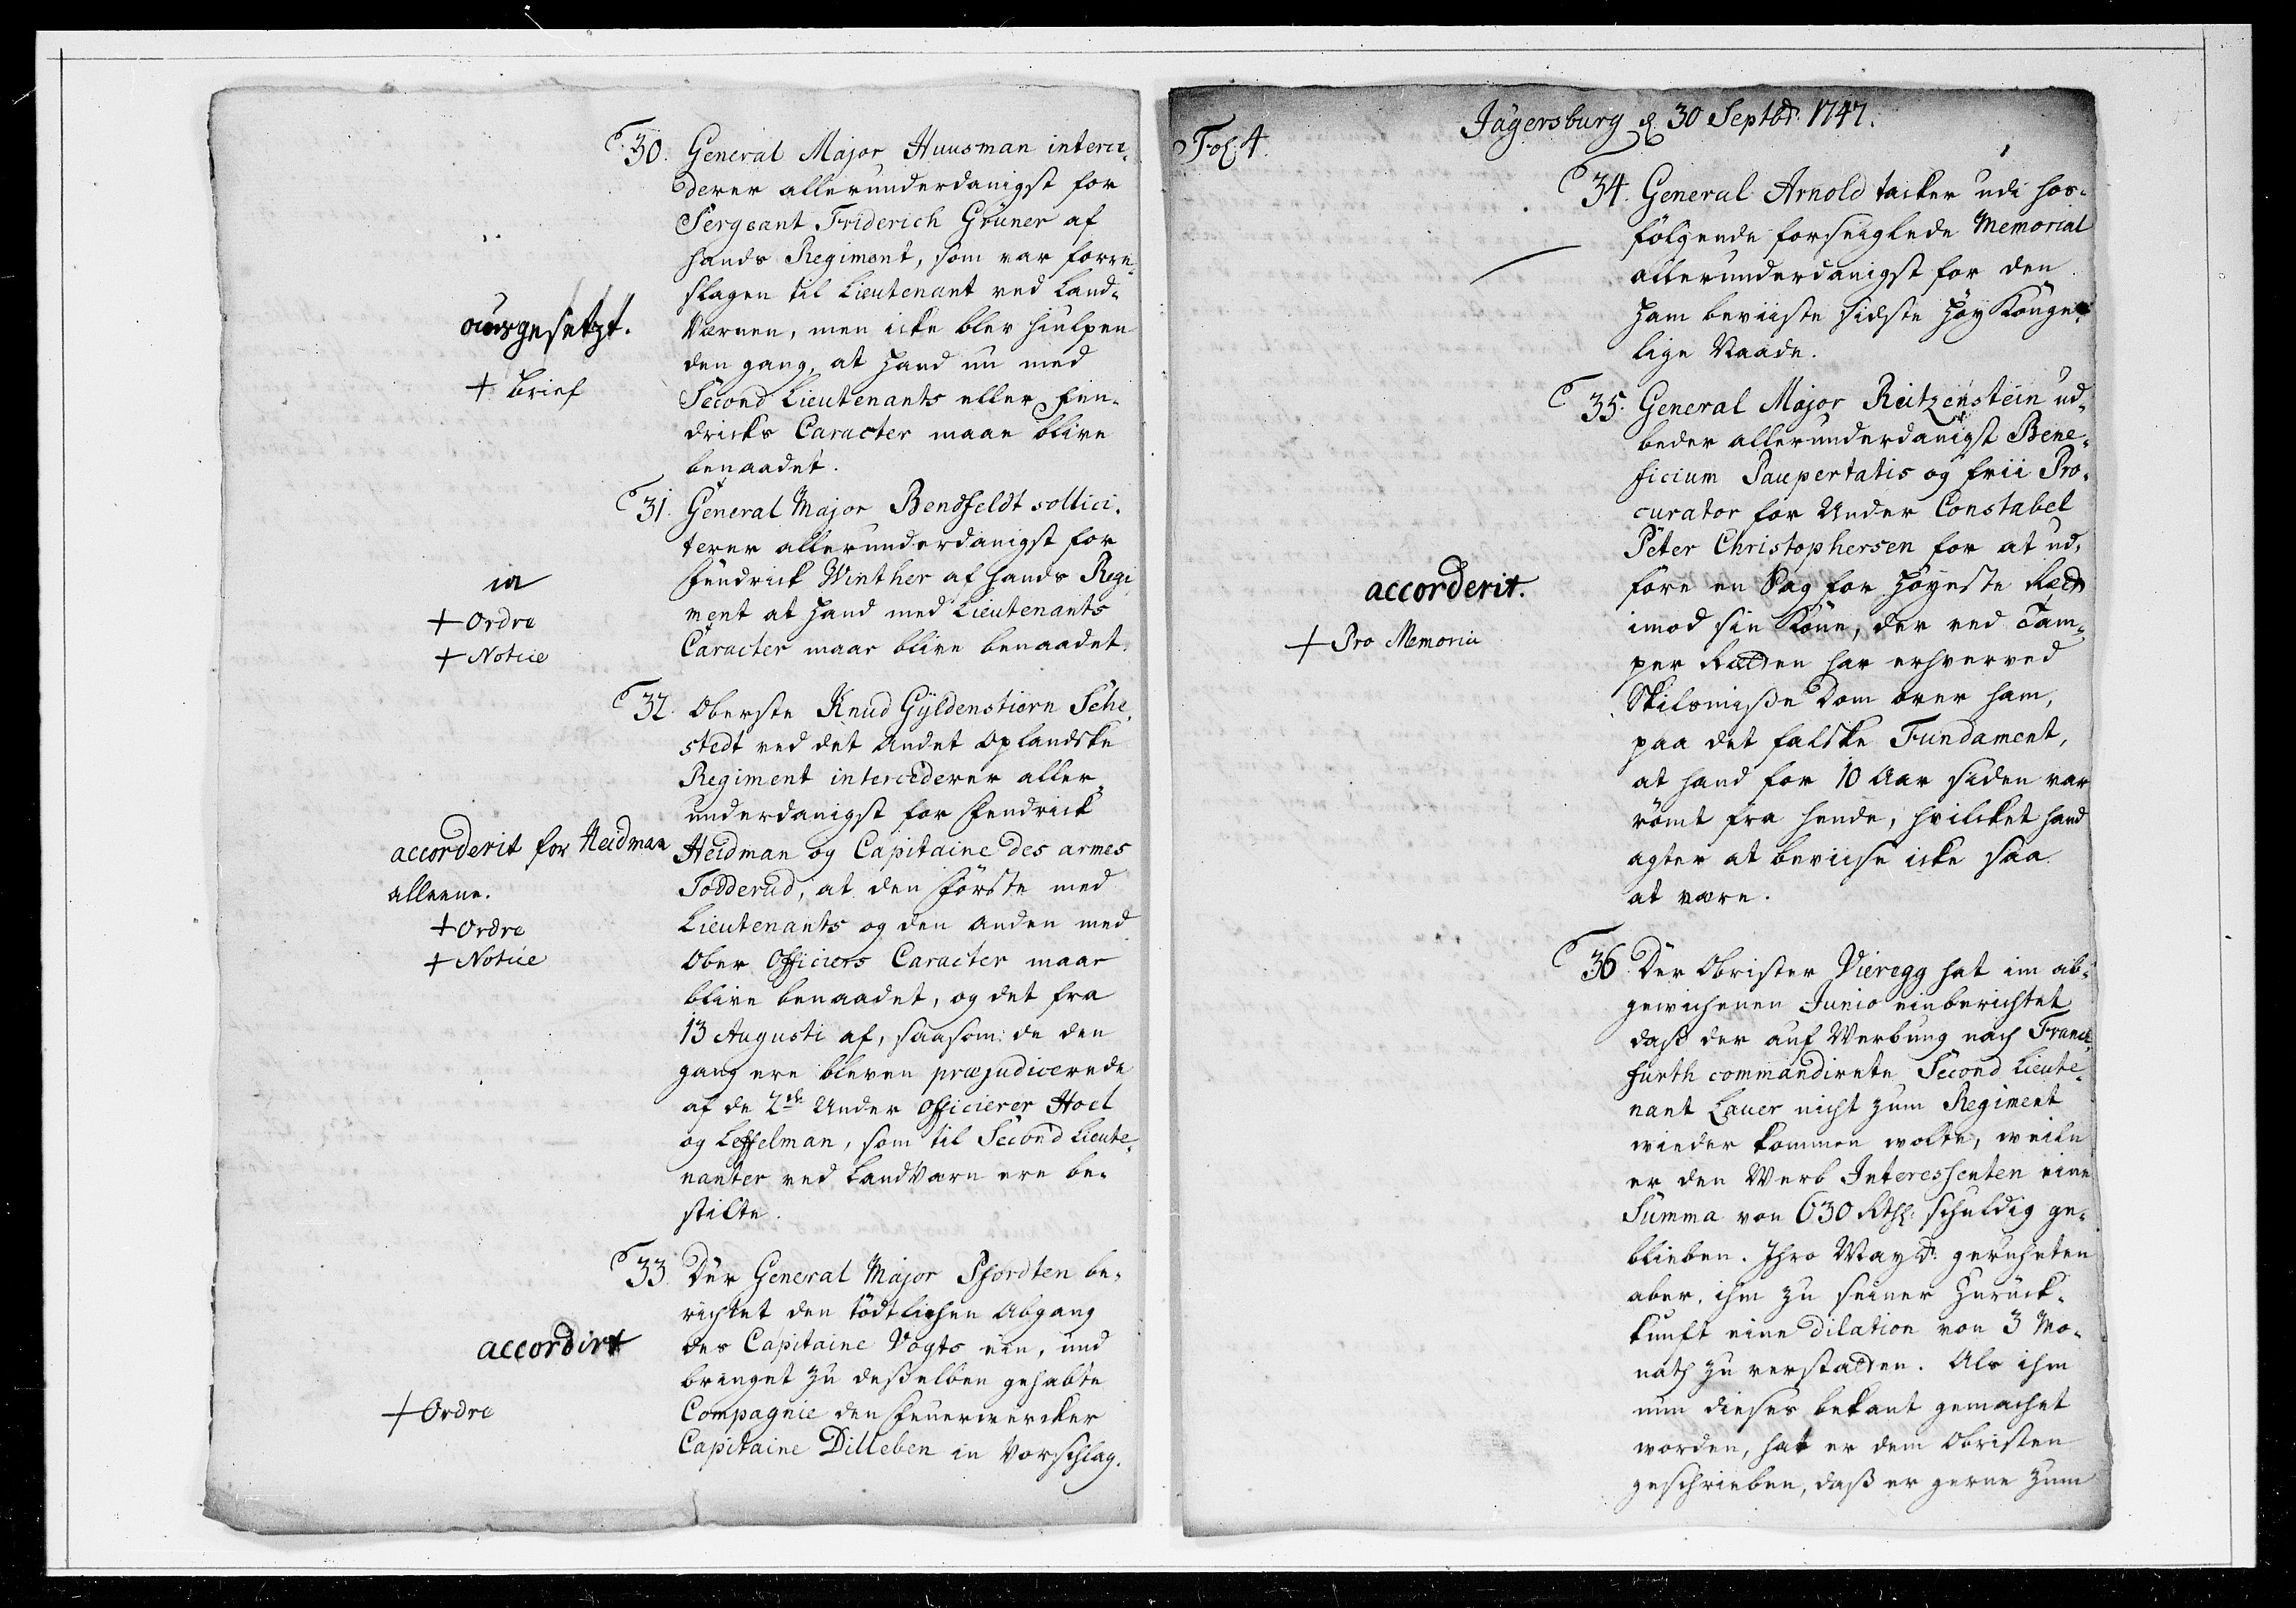 30. General Major Huusman interce-
derer allerunderdanigst for
Sergeant Friderich Grüner af
hands Regiment, som var fore-
slagen til Lieutenant ved Land-
Værnen, men icke blev hiulpen
den gang, at Hand nu med
Second Lieutenants eller Fen-
dricks Caracter maae blive
benaadet.
ausgesetzt.
+ Brief
31. General Major Bendfeldt sollici-
terer allerunderdanigst for
Fendrick Winther af hands Regi
ment at Hand med Lieutenants
Caracter maae blive benaadet.
ia
+ Ordre
+ Notice
32. Oberste Knud Gyldenstiern Sehe
stedt ved det Andet Oplandske
Regiment intercederer aller-
underdanigst for Fendrick
Heidman og Capitaine des armes
Todderud, at den Første med
Lieutenants og den anden med
Ober Officiers Caracter maae
blive benaadet, og det fra
13 Augusti af, saasom de den
gang ere bleven præjudicerede
af de 2de Under Officierer Hoel
og Leffelman, som til Second Lieute-
nanter ved LandVærn ere be-
stilte.
accorderit for Heidman
alleene.
+ Ordre
+ Notice
33. Der General Major Pfordten be-
richtet den tödtlichen Abgang
des Capitaine Vogts ein, und
bringet zu deßelben gehabte
Compagnie den Feuerwercker
Capitaine Dilleben in Vorschlag.
accordirt
+ Ordre
Fol. 4.
Jägersburg d. 30 Septbr. 1747.
34. General Arnold tacker udi hos-
følgende forseiglede Memorial
allerunderdanigst for den
Ham beviiste sidste Høy Konge-
lige Naade.
35. General Major Reitzenstein ud-
beder allerunderdanigst Bene-
ficium Paupertatis og frii Pro-
curator for Under Constabel
Peter Christophersen for at ud-
føre en Sag for Høyeste Ræt
imod sin Kone, der ved Tam-
per Rætten har erhverved
Skilsmisse Dom over ham,
paa det falske Fundament,
at hand for 10 Aar siden var
römt fra hende, hvilcket hand
agter at beviise icke saa
at være.
accorderit.
+ Pro Memoria
36. Der Obrister Vieregg hat im ab-
gewichenen Junio einberichtet
dast der auf Werbung nach Franck-
furth commandirete Second Lieute-
nant Lauer nicht zum Regiment
wieder kommen wolte, weiln
er den Werb Interessenten eine
Summa von 630 Rthl. schuldig ge-
blieben. Ihro Mayt. geruheten
aber, ihm zu seiner Zurück-
kunft eine Dilation von 3 Mo-
nath zu verstatten. Als ihm
nun dieses bekant gemachet
worden, hat er dem Obristen
geschrieben, daß er gerne zum